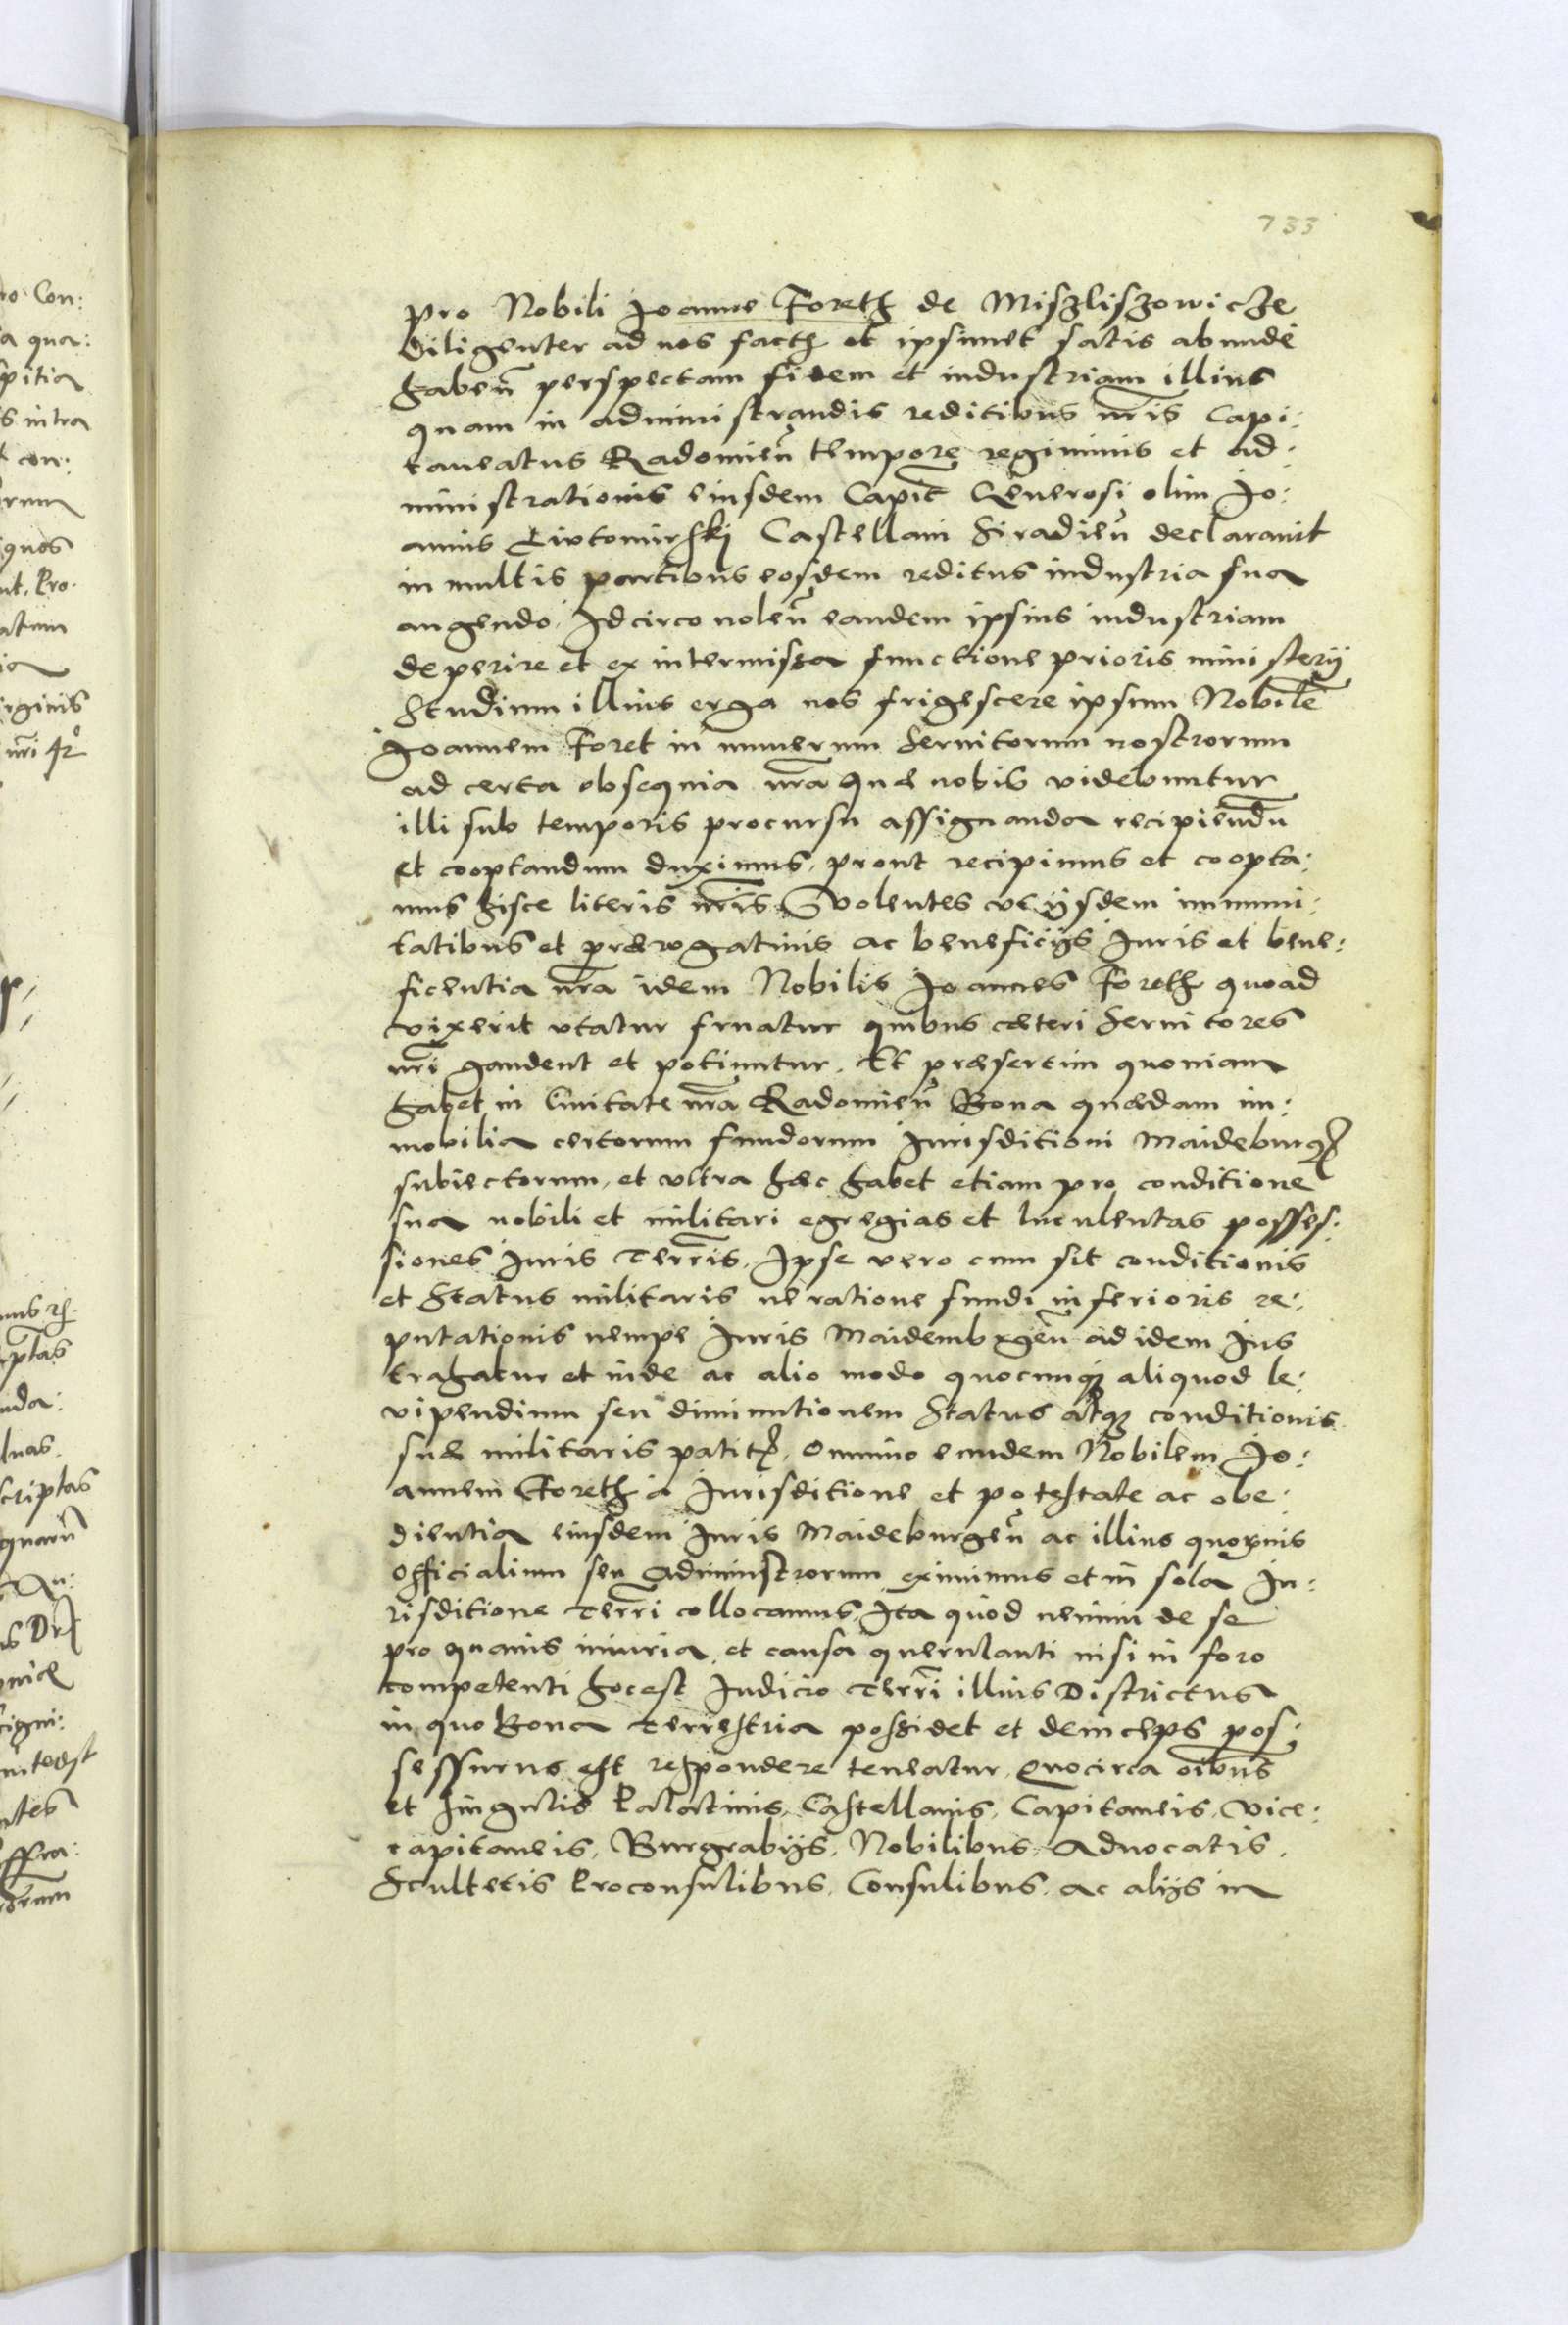 733
pro Nobili Joanne Foreth de Miszliszowicze
diligenter ad nos facth et ipsimet satis abunde
haben̄ perspectam fidem et industriam illius
quam in administrandis reditibus nr̄is Capi:
taneatus Radomien̄ tempore regiminis et ad:
ministrationis eiusdem Capit̄ Generosi olim Jo:
annis Siradien̄ Castellani declaravit
in multis partibus eosdem reditus industria sua
augendo. Idcirco nolen̄ eandem ipsius industriam
deperire et ex intermissa functione prioris ministerij
Studium illius erga nos frigescere ipsum Nobilē
Joannem Foret in numerum Seruitorum nostrorum
ad certa obsequia nr̄a que nobis videbuntur
illi sub temporis procursu assignanda recipiendū
et cooptandum duximus, prout recipimus et coopta:
mus hisce literis nr̄is Volentes ut ijsdem immuni:
tatibus et prærogatiuis ac beneficijs Juris et bene:
ficentia nr̄a idem Nobilis Joannes Foreth quoad
vixerit vtatur fruatur quibus cæteri Seruitores
nr̄i gaudent et potiuntur. Et præsertim quoniam
habet in Ciuitate nr̄a Radomien̄ Bona quædam im:
mobilia certorum fundorum Jurisditioni Maideburg̃
subiectorum, et vltra hæc habet etiam pro conditione
sua nobili et militari egregias et luculentas posses:
siones Juris Terr̄is. Ipse vero cum sit conditionis
et Status militaris ne ratione fundi inferioris re:
putationis nempe Juris Maidemburgen̄ ad idem Jus
trahatur et inde ac alio modo quocunq; aliquod le:
vipendium seu diminutionem Status atq; conditionis
suæ militaris patit̃, omnino eundem Nobilem Jo:
annem Foreth à Jurisditione et potestate ac obe:
dientia eiusdem Juris Maideburgen̄ ac illius quoruis
Officialium seu Administrorum eximimus et in sola Ju:
risditione Terr̄i collocamus, Ita quod nemini de se
pro quauis iniuria et causa querulanti nisi in foro
competenti hoc est Judicio Terr̄i illius Districtus
in quo Bona Terrestria possidet et deinceps pos:
sessurus est respondere teneatur, Quocirca oībus
et singulis Palatinis, Castellanis, Capitaneis, Vice:
capitaneis, Burgrabijs, Nobilibus, Aduocatis,
Scultetis Proconsulibus, Consulibus, ac alijs in